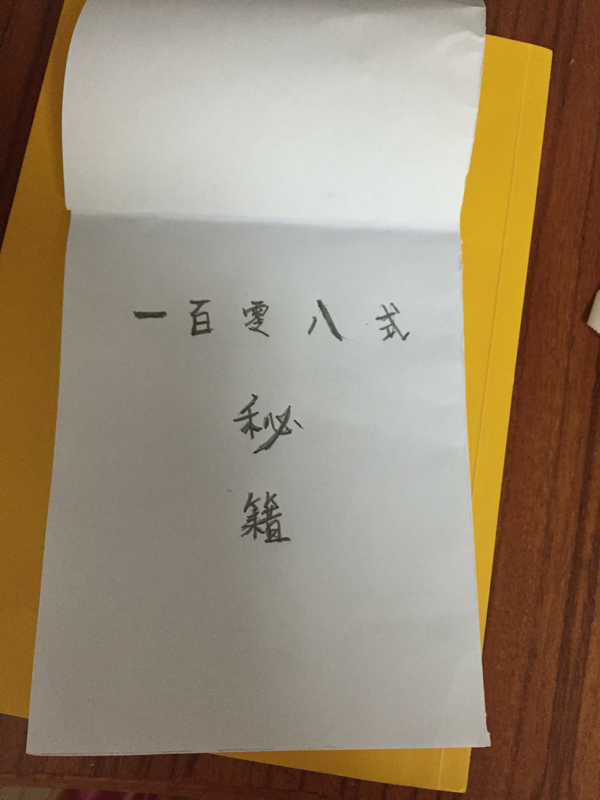 一百零八式
秘
籍